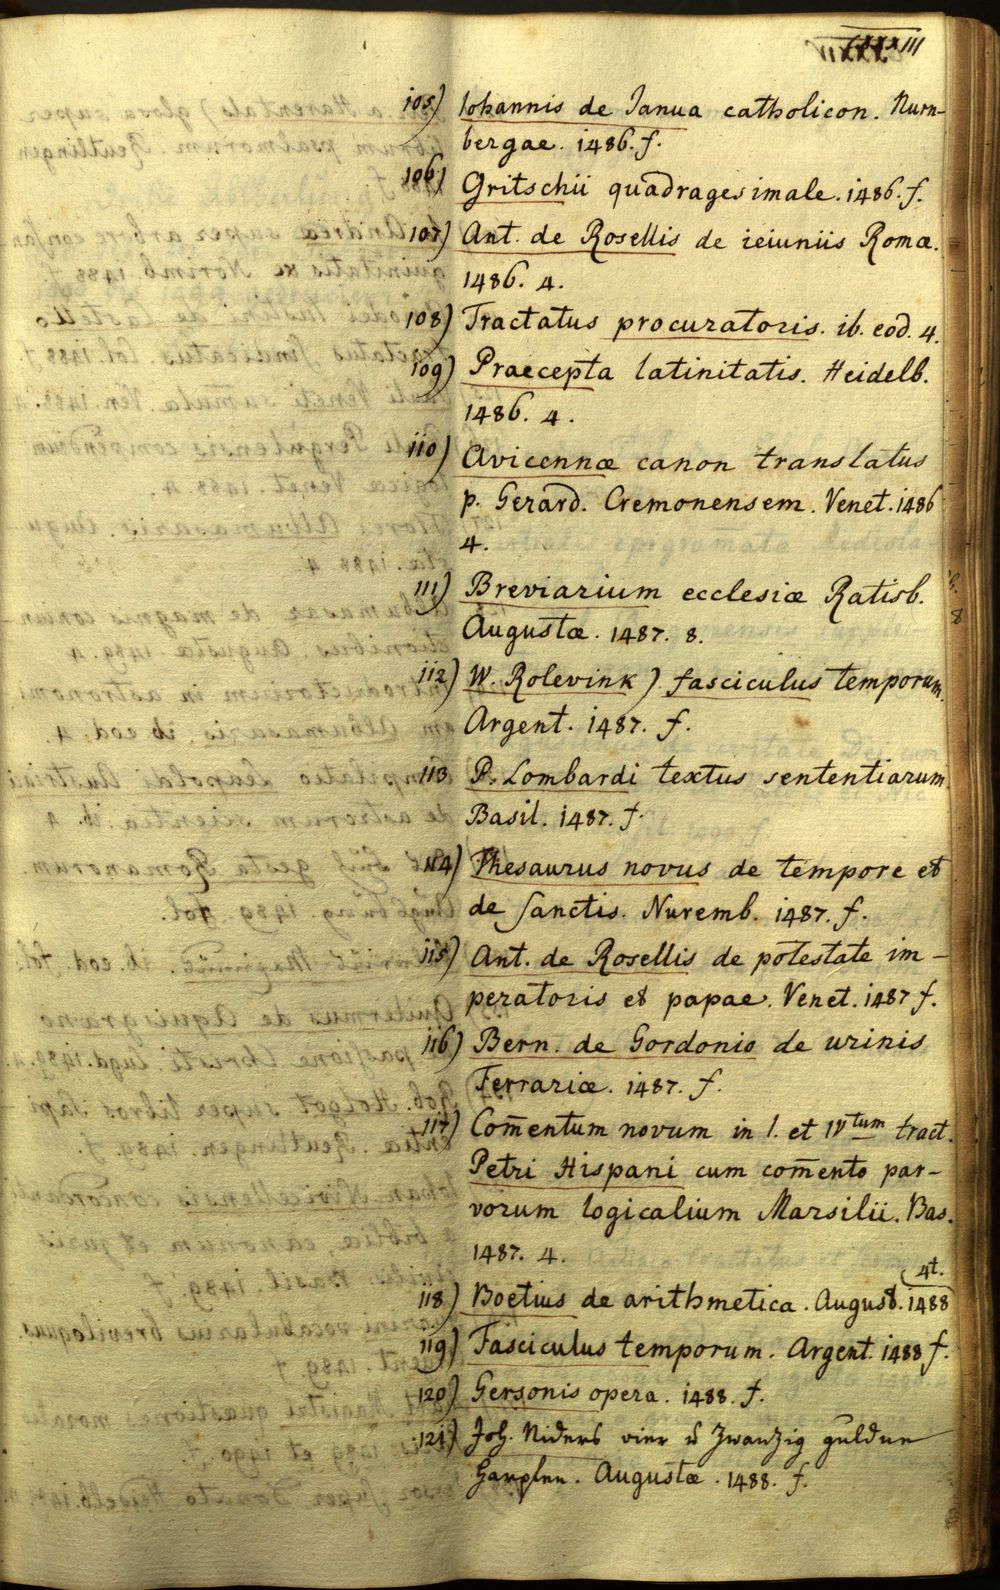 105) Iohannis de Ianua catholicon. Nurn-
bergae. 1486. f.
106) Gritschii quadragesimale. 1486. f.
107) Ant. de Rosellis de ieiuniis Romæ.
1486. 4.
108) Tractatus procuratoris. ib. eod. 4.
109) Praecepta latinitatis. Heidelb.
1486. 4.
110) Avicennæ canon translatus
p. Gerard. Cremonensem. Venet. 1486
4.
111) Breviarium ecclesiæ Ratisb.
Augustæ. 1487. 8.
112) W. Rolevink) fasciculus temporum.
Argent. 1487. f.
113 P. Lombardi textus sententiarum.
Basil. 1487. f.
114) Thesaurus novus de tempore et
de sanctis. Nuremb. 1487. f.
115) Ant. de Rosellis de potestate im-
peratoris et papae. Venet. 1487 f.
116) Bern. de Gordonio de urinis
Ferrariæ. 1487. f.
117) Com̅entum novum in I. et IVtum tract.
Petri Hispani cum com̅ento par-
vorum logicalium Marsilii. Bas.
1487. 4.
4t.
118) Boetius de arithmetica. August. 1488
119) Fasciculus temporum. Argent. 1488 f.
120) Gersonis opera. 1488. f.
121) Joh. Niders vier u̅ zwanzig guldne
Harpfen. Augustæ. 1488. f.